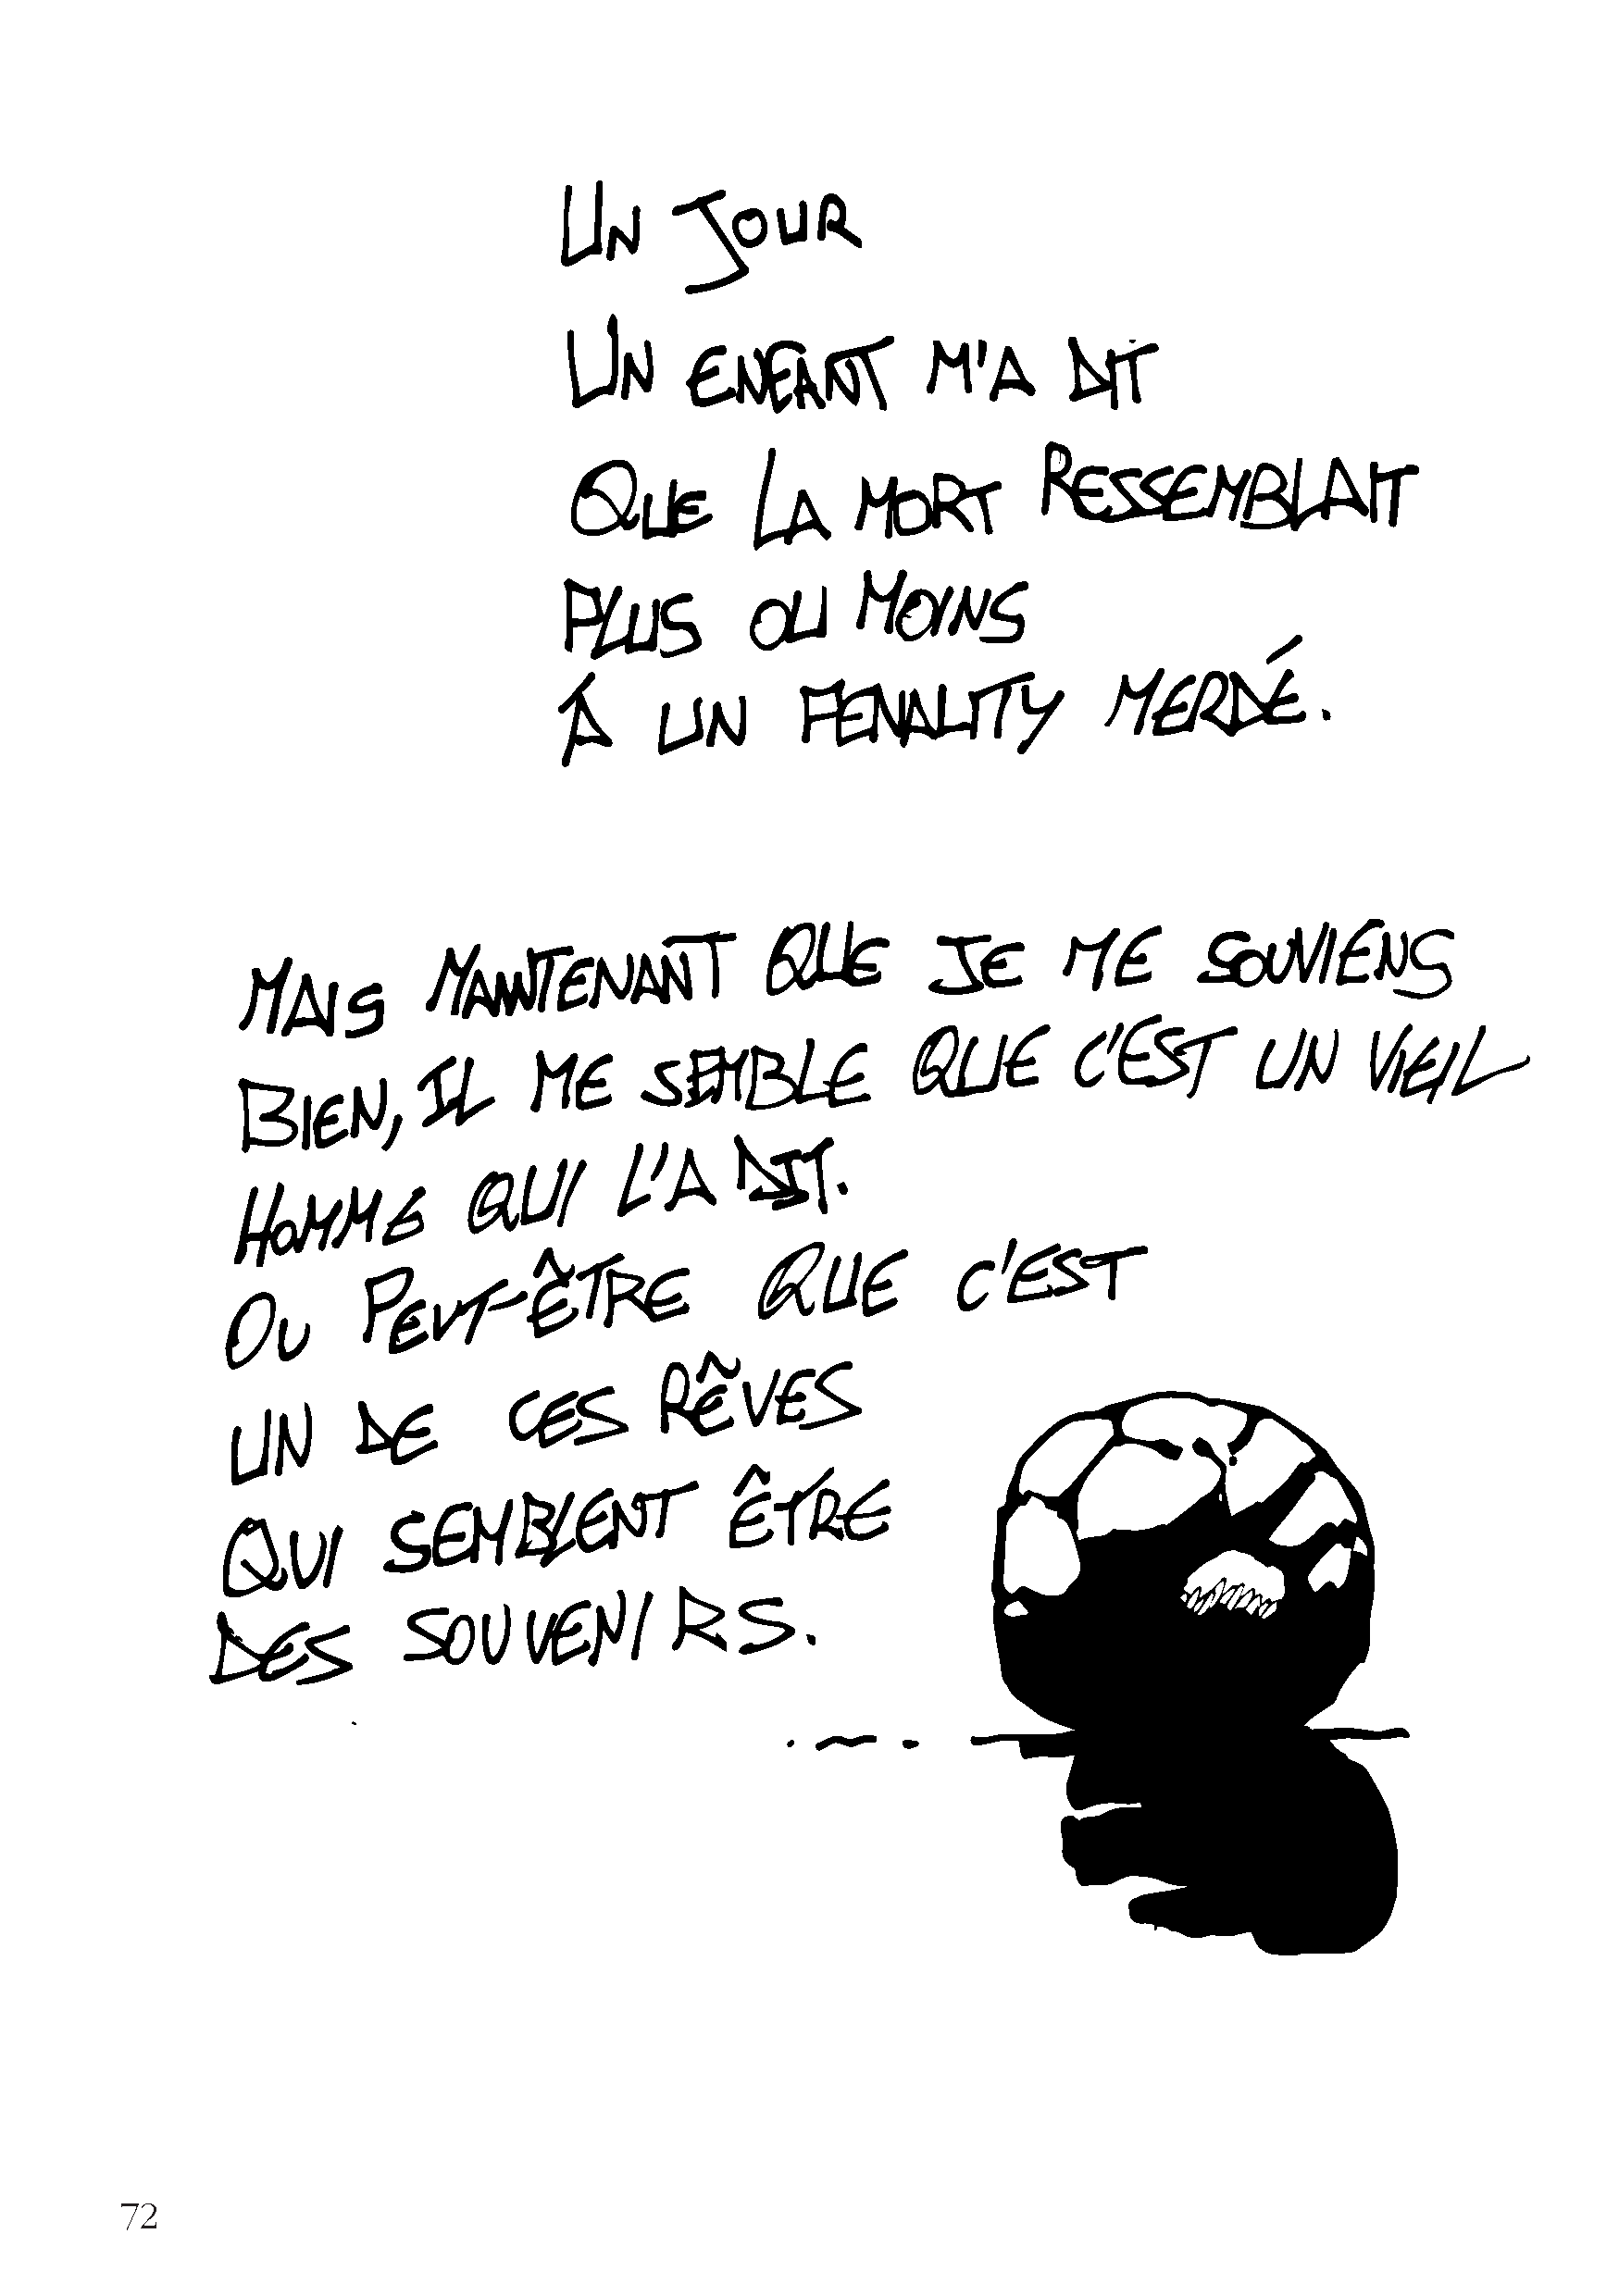 UN JOUR
UN ENFANT M'A DIT
QUE LA MORT RESSEMBLAIT
PLUS OU MOINS
À UN PENALITY MERDÉ.
MAIS MAINTENANT QUE JE ME SOUVIENS
BIEN, IL ME SEMBLE QUE C'EST UN VIEIL
HOMME QUI L'A DIT.
OU PEUT-ÊTRE QUE C'EST
UN DE CES RÊVES
QUI SEMBLENT ÊTRE
DES SOUVENIRS.
72